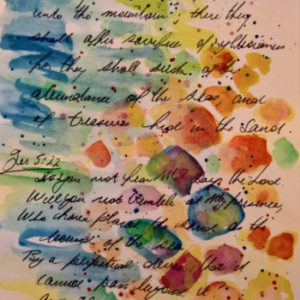 unto the mountain; there they
shall offer sacrifice of righteousness
for they shall suck of the
abundance of the seas, and
of treasure hid in the sand.
Jer 5:22
Do you not fear Me? says the Lord
Will you not tremble at My presence,
Who have placed the sand as the
bound of the sea
By a perpetual decree, that it
cannot pass beyond it